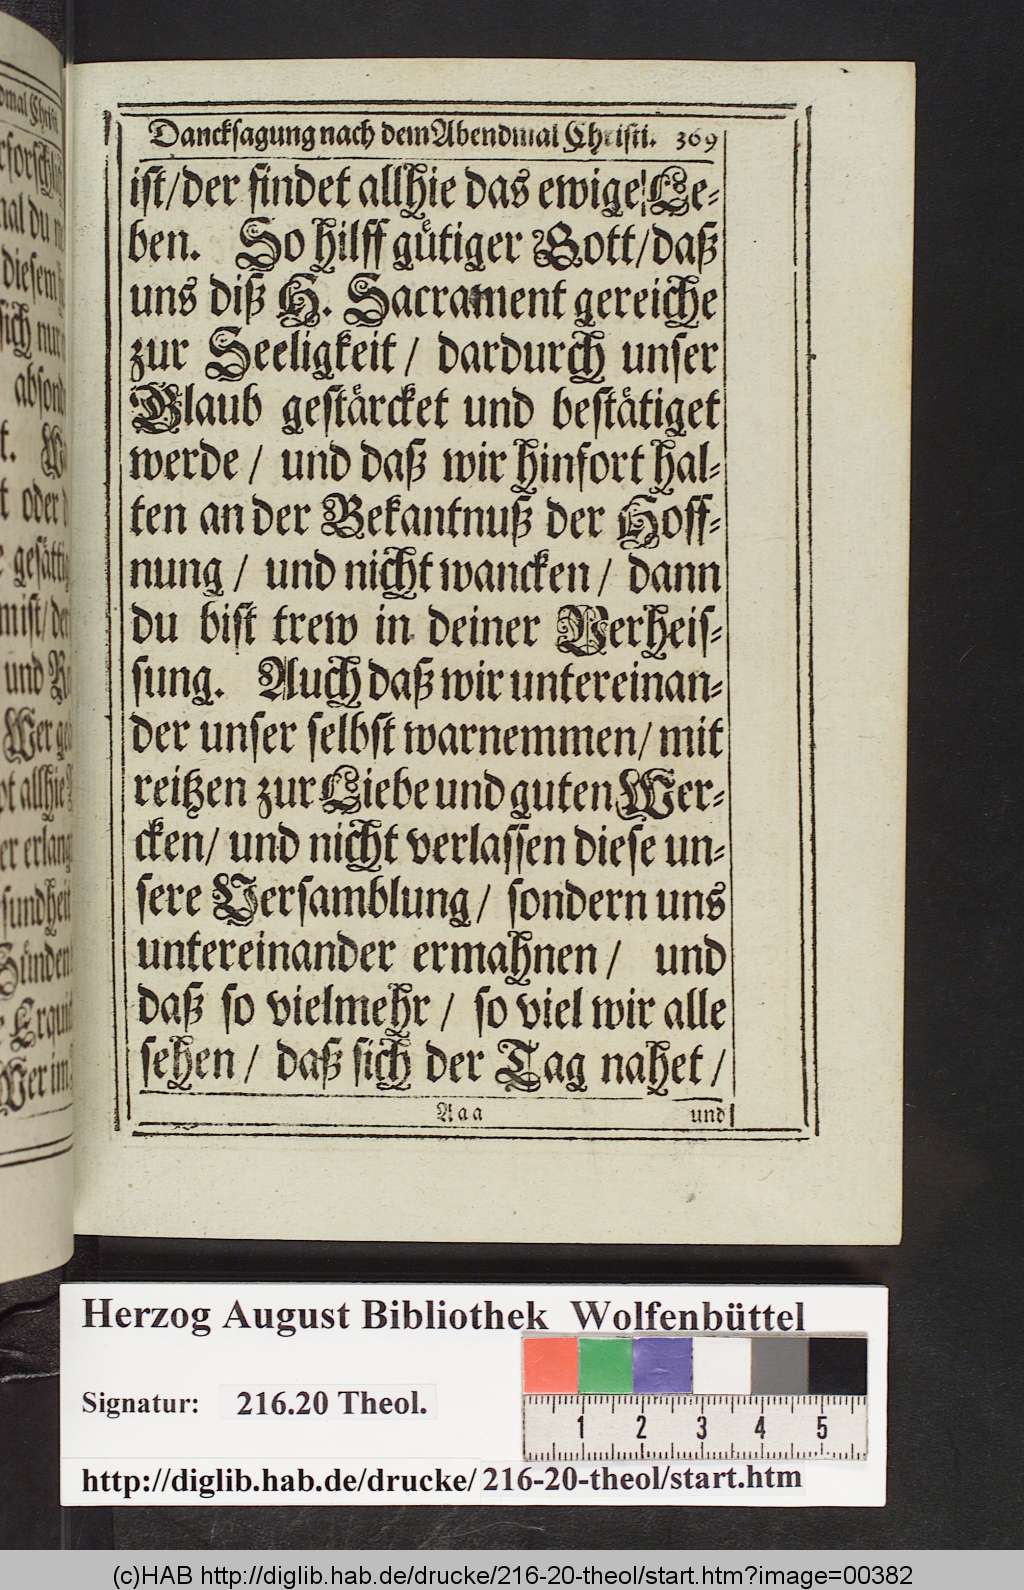 dmal Christi
erforsch
mal du
diesem
sich nur
absond
t. W
t oder d
e gesättig
mist/ de
und
Wer
pt allhie
er erlang
sundheit
Sünden
Erqui
Wer im
Dancksagung nach dem Abendmal Christi. 369
ist/ der findet allhie das ewige Le-
ben. So hilff gütiger Gott/ daß
uns diß H. Sacrament gereiche
zur Seeligkeit/ dardurch unser
Glaub gestärcket und bestätiget
werde/ und daß wir hinfort hal-
ten an der Bekantnuß der Hoff-
nung/ und nicht wancken/ dann
du bist trew in deiner Verheis-
sung. Auch daß wir untereinan-
der unser selbst warnemmen/ mit
reitzen zur Liebe und guten Wer-
cken/ und nicht verlassen diese un-
sere Versamblung/ sondern uns
untereinander ermahnen/ und
daß so vielmehr/ so viel wir alle
sehen/ daß sich der Tag nahet/
Aaa und
Herzog August Bibliothek Wolfenbüttel
Signatur: 216.20 Theol.
1 2 3 4 5
http://diglib.hab.de/drucke/ 216-20-theol/start.htm
(c)HAB http://diglib.hab.de/drucke/216-20-theol/start.htm?image=00382